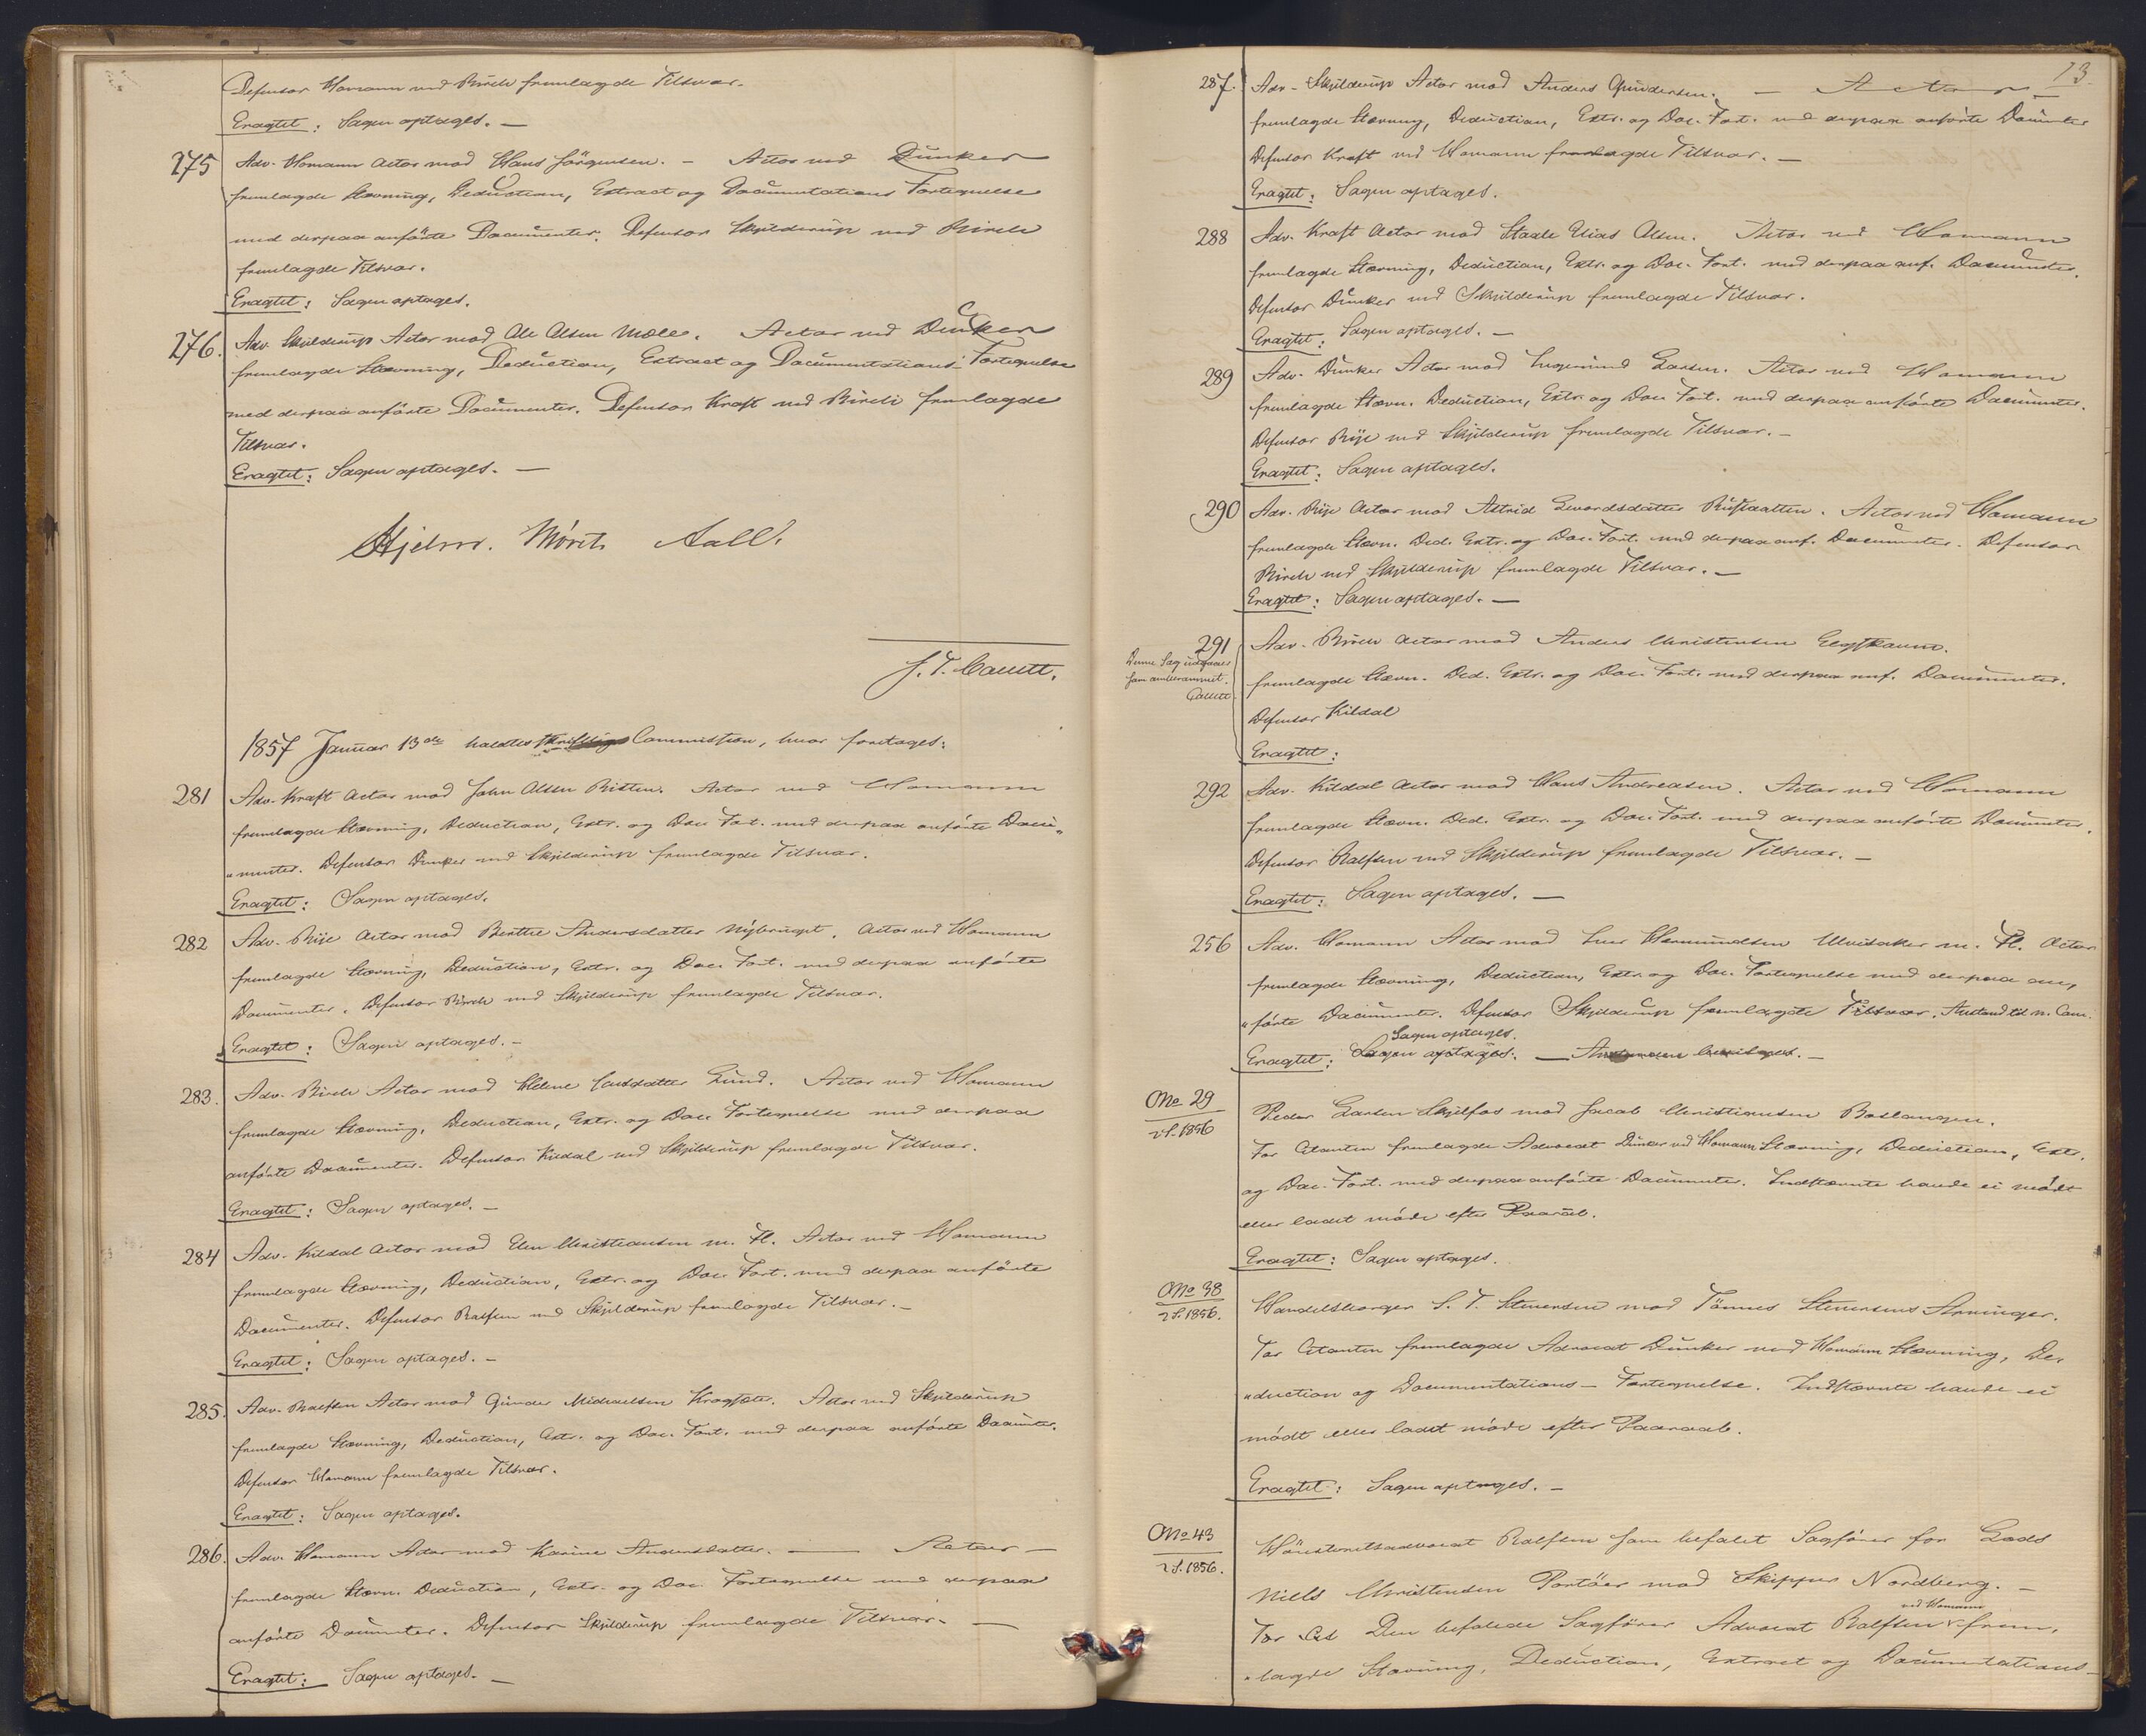 Defensor Homann ved Birch fremlagde Tilsvar.
Eragtet: Sagen optages. —
275 Adv. Homann Actor mod Hans Jörgensen. – Actor ved Dunker
fremlagde Stævning, Deduction, Extract og Documentations Fortegnelse
med derpaa anförte Documenter. Defensor Skjilderup ved Birch
fremlagde Tilsvar.
Eragtet: Sagen optages.
276. Adv. Skjilderup Actor mod Ole Olsen Mæle. Actor ved Dunker
fremlagde Stævning, Deduction, Extract og Documentations-Fortegnelse
med derpaa anförte Documenter. Defensor Kraft ved Birch fremlagde
Tilsvar.
Eragtet: Sagen optages. —
Hjelm. Mörch Aall.
J. T. Collett.
1857 Januar 13de holdtes skriftlig Commission, hvor foretoges:
281 Adv. Kraft Actor mod John Olsen Ritten. Actor ved Homann
fremlagde Stævning, Deduction, Extr. og Doc. Fort. med derpaa anförte Docu„
„menter. Defensor Dunker ved Skjilderup fremlagde Tilsvar.
Eragtet: Sagen optages.
282 Adv. Rije Actor mod Berthe Andersdatter Nÿbruget. Actor ved Homann
fremlagde Stævning, Deduction, Extr. og Doc. Fort. med derpaa anförte
Documenter. Defensor Birch ved Skjilderup fremlagde Tilsvar.
Eragtet: Sagen optages. –
283. Adv. Birch Actor mod Helene Lund. Actor ved Homann
fremlagde Stævning, Deduction, Extr. og Doc. Fortegnelse med derpaa
anförte Documenter. Defensor Kildal ved Skjilderup fremlagde Tilsvar.
Eragtet: Sagen optages. –
284 Adv. Kildal Actor mod Elen Christiansen m. Fl. Actor ved Homann
fremlagde Stævning, Deduction, Extr. og Doc. Fort. med derpaa anförte
Documenter. Defensor Ralfsen ved Skjilderup fremlagde Tilsvar. –
Eragtet: Sagen optages. –
285. Adv. Ralfsen Actor mod Gunder Michaelsen. Actor ved Skjilderup
fremlagde Stævning, Deduction, Extr. og Doc. Fort. med derpaa anförte Documter.
Defensor Homann fremlagde Tilsvar.
Eragtet: Sagen optages.
286. Adv. Homann Actor mod Karine Andersdatter. — Actor —
fremlagde Stævn. Deduction, Extr. og Doc. Fortegnelse med derpaa
anförte Documter. Defensor Skjilderup fremlagde Tilsvar. —
Eragtet: Sagen optages. —
13.
287. Adv. Skjilderup Actor mod Anders Gundersen. — Actor —
fremlagde Stævning, Deduction, Extr. og Doc. Fort. med derpaa anförte Documter
Defensor Kraft ved Homann fremlagde Tilsvar. —
Eragtet: Sagen optages.
288 Adv. Kraft Actor mod Staale Elias Olsen. Actor ved Homann
fremlagde Stævning, Deduction, Extr. og Doc. Fort. med derpaa anf. Documenter.
Defensor Dunker ved Skjilderup fremlagde Tilsvar.
Eragtet: Sagen optages. —
289 Adv. Dunker Actor mod Ingemund Larsen. Actor ved Homann
fremlagde Stævn. Deduction, Extr. og Doc. Fort. med derpaa anförte Documter.
Defensor Rije ved Skjilderup fremlagde Tilsvar. –
Eragtet: Sagen optages.
290 Adv. Rije Actor mod Astrid. Actor ved Homann
fremlagde Stævn. Ded. Extr. og Doc. Fort. med derpaa anf. Documenter. Defensor
Birch ved Skjilderup fremlagde Tilsvar. –
Eragtet: Sagen optages. —
291 Adv. Birch Actor mod Anders Christensen.
Denne Sag udgaaer
som omberammet.
Collett
fremlagde Stævn. Ded. Extr. og Doc. Fort. med derpaa anf. Documenter.
Defensor Kildal
Eragtet:
292 Adv. Kildal Actor mod Hans Andreasen. Actor ved Homann
fremlagde Stævn. Ded. Extr. og Doc. Fort. med derpaa anförte Documter.
Defensor Ralfsen ved Skjilderup fremlagde Tilsvar. –
Eragtet: Sagen optages. —
256 Adv. Homann Actor mod Iver Hermundsen Ulvisaker m. Fl. Actor
fremlagde Stævning, Deduction, Extr. og Doc. Fortegnelse med derpaa an„
„förte Documenter. Defensor Skjilderup fremlagde Tilsvar. Anstand til n. Com.
Sagen optages.
Eragtet: Sagen optages. — Anstanden bevilges. –
No 29
2 S. 1856
Peder Larsen Skjelfos mod Jacob Christiansen Baslangen.
For Citanten fremlagde Advocat Dunker ved Homann Stævning, Deduction, Extr.
og Doc. Fort. med derpaa anförte Documenter. Indstævnte havde ei mödt
eller ladet möde efter Paaraab.
Eragtet: Sagen optages.
No 38
2 S. 1856.
Handelsborger S. T. Stenersen mod Tönnes Stenersens Arvinger.
For Citanten fremlagde Advocat Dunker ved Homann Stævning, De„
„duction og Documentations-Fortegnelse. Indstævnte havde ei
mödt eller ladet möde efter Paaraab.
Eragtet: Sagen optages. –
No 43
2 S. 1856.
Höiesteretsadvocat Ralfsen som befalet Sagförer for Lods
Niels Christensen Portöer mod Skipper Nordberg. –
For Cit Den befalede Sagförer Advocat Ralfsen ved Homann frem„
„lagde Stævning, Deduction, Extract og Documentations–